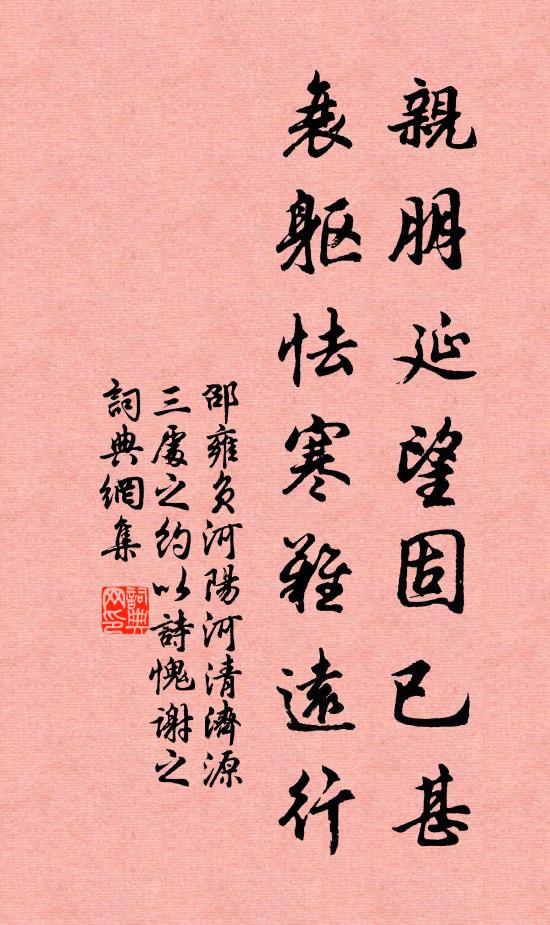 親朋延望固已甚
衰軀怯寒難遠行
邵雍負河陽河清濟源
三處之約以詩愧謝之
詞典網集
詞典網印